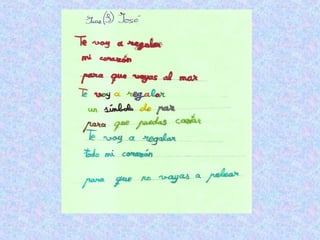 José
Te voy a regalar
mi corazón
para que vayas al mar
Te voy a regalar
un símbolo de paz
para que puedas cantar
Te voy a regalar
todo mi corazón
para que no vayas a pelear